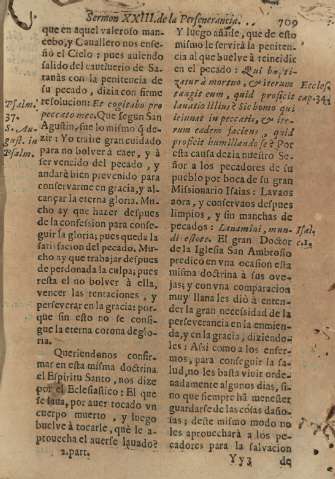 Sermon XXIII. de la Perseverancia.
709
que en aquel valeroso man-
cebo, y Cauallero nos ense-
ñò el Cielo: pues auiendo
salido del cautiuerio de Sa-
tanàs con la penitencia de
su pecado, dizia con firme
resolucion: Et cogitabo pro
peccato meo. Que segun San
Agustin, fue lo mismo q̃ de-
zir: Yo traire gran cuidado
para no bolver à caer, y à
ser vencido del pecado, y
andarè bien prevenido para
conservarme en gracia, y al-
cançar la eterna gloria. Mu-
cho ay que hazer despues
de la confession para conse-
guir la gloria; pues queda la
satisfacion del pecado. Mu-
cho ay que trabajar despues
de perdonada la culpa; pues
resta el no bolver à ella,
vencer las tentaciones, y
perseverar en la gracia: por-
que sin esto no se consi-
gue la eterna corona de glo-
ria.
Queriendonos confir-
mar en esta misma doctrina
el Espiritu Santo, nos dize
por el Eclesiastico: El que
se laua, por auer tocado vn
cuerpo muerto, y luego
buelve à tocarle, què le a-
prouecha el auerse lauado?
2. part.
Psalm.
37.
S. Au-
gust. in
Psalm.
Y luego añade, que de esto
mismo le servirà la peniten-
cia al que buelve à reincidir
en el pecado: Qui baptizatur à mortuo, & iterum
tangit eum, quid proficit
lauatio illius? Sic homo qui
ieiunat in peccatis, & ite-
rum eadem faciens, quid
proficit humiliando se? Por
esta causa dezia nuestro Se-
ñor à los pecadores de su
pueblo por boca de su gran
Missionario Isaias: Lavaos
aora, y conservaos despues
limpios, y sin manchas de
pecados: Lauamini, mun-
di estote. El gran Doctor
de la Iglesia San Ambrosio
predicò en vna ocasion esta
misma doctrina à sus ove-
jas; y con vna comparacion
muy llana les diò à enten-
der la gran necessidad de la
perseverancia en la enmien-
da, y en la gracia, diziendo-
les: Assi como à los enfer-
mos, para conseguir la sa-
lud, no les basta vivir orde-
nadamente algunos dias, si-
no que siempre hã menester
guardarse de las cosas daño-
sas; deste mismo modo no
les aprouecharà à los pe-
cadores para la salvacion
Yy3
de
Eccles.
cap. 34.
Isai.
c. 1.